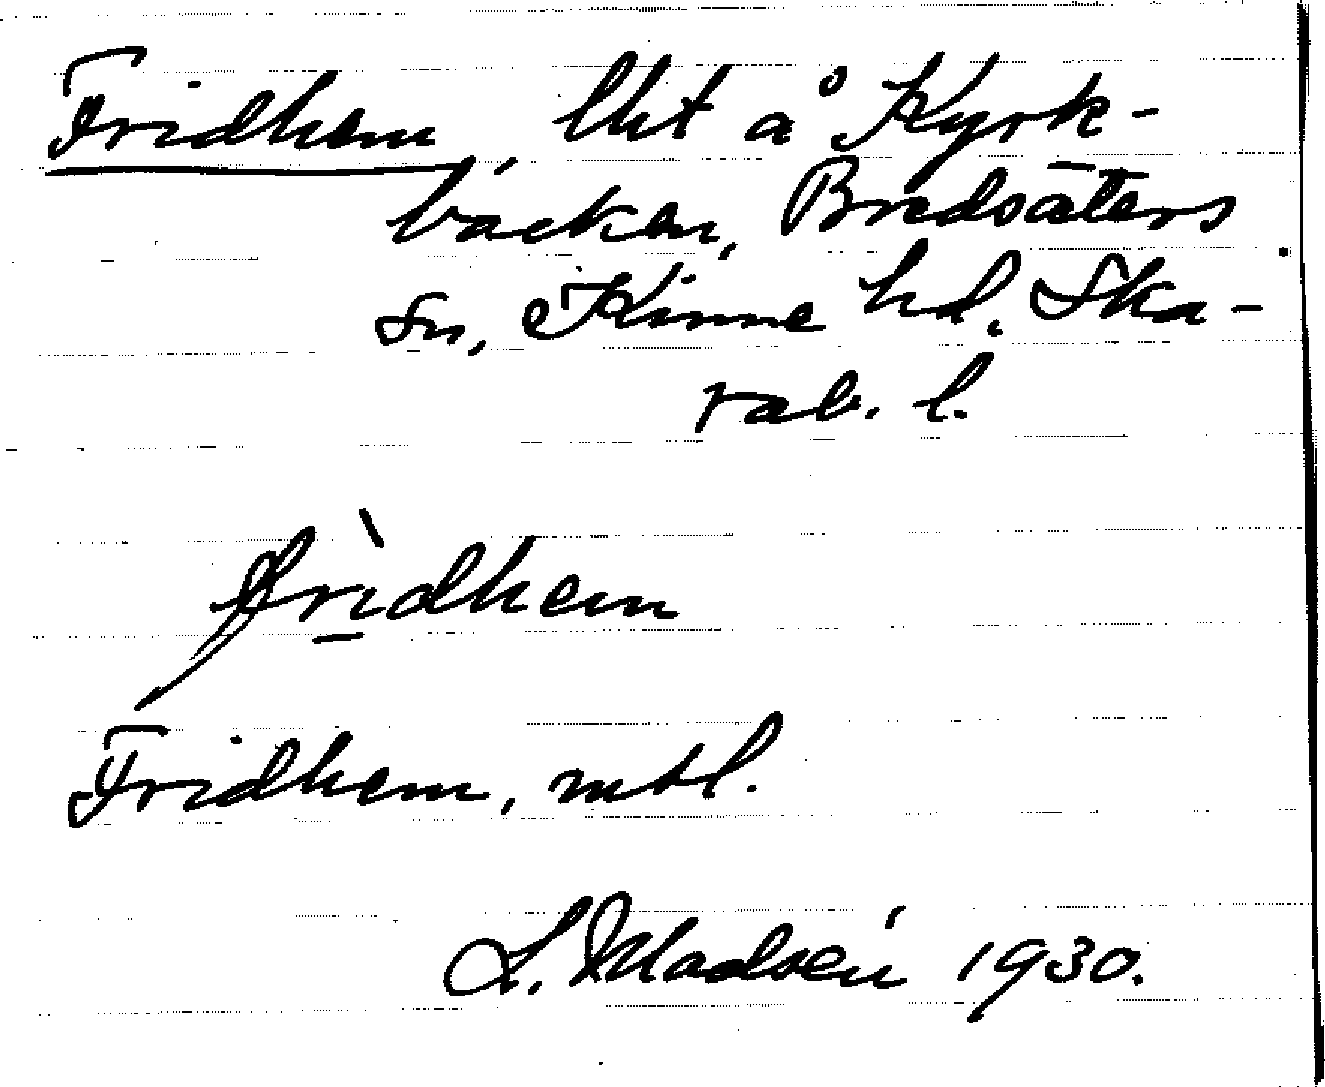 Fridhem, lht å Kyrk-
backen, Bredsäters
sn, Kinne hd. Ska-
rab. l.
frìdhem
Fridhem, mtl.
L. Madsén 1930.